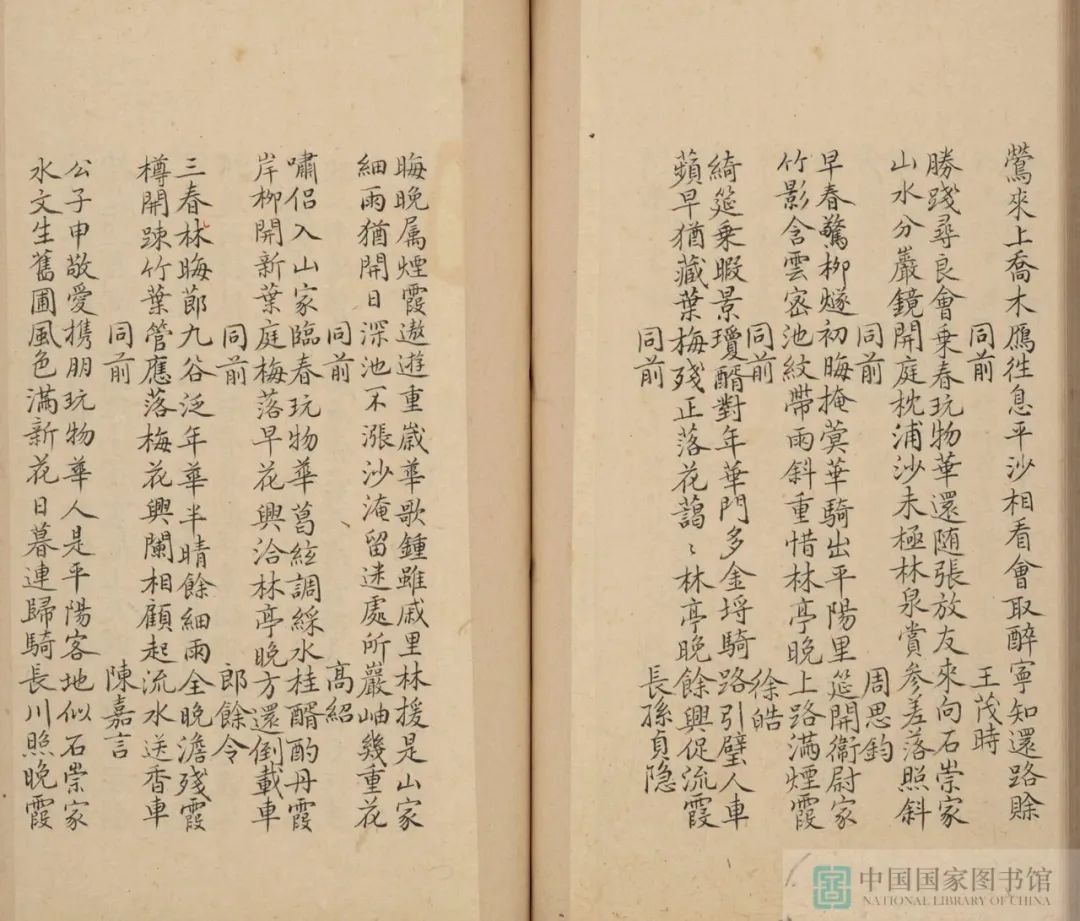 鶯來上喬木鴈徃息平沙相看會取醉寧知還路賒
同前　王茂時
勝踐尋良會乗春玩物華還随張放友來向石崇家
山水分巖鏡開庭枕浦沙未極林泉賞參差落照斜
同前　周思鈞
早春驚柳𤎱初晦掩蓂華騎出平陽里筵開衞尉家
竹影含雲宻池紋帶雨斜重惜林亭晚上路滿煙霞
同前　徐皓
綺筵乗暇景瓊醑對年華門多金埒騎路引璧人車
蘋早猶藏葉梅殘正落花藹〻林亭晚餘興促流霞
同前　長孫貞隐
晦晚属煙霞遨遊重嵗華歌鍾雖戚里林援是山家
細雨猶開日深池不漲沙淹留迷處所巖岫幾重花
同前　髙紹
嘯侣入山家臨春玩物華葛絃調綵水桂醑酌丹霞
岸栁開新葉庭梅落早花興洽林亭晚方還倒載車
同前　郎餘令
三春林晦莭九谷泛年華半晴餘細雨全晚澹殘霞
樽開踈竹葉管應落梅花興闌相顧起流水送香車
同前　陳嘉言
公子申敬愛携朋玩物華人是平陽客地似石崇家
水文生舊圃風色滿新花日暮連歸騎長川照晚霞
中国国家图书馆
NATIONAL LIBRARY OF CHINA